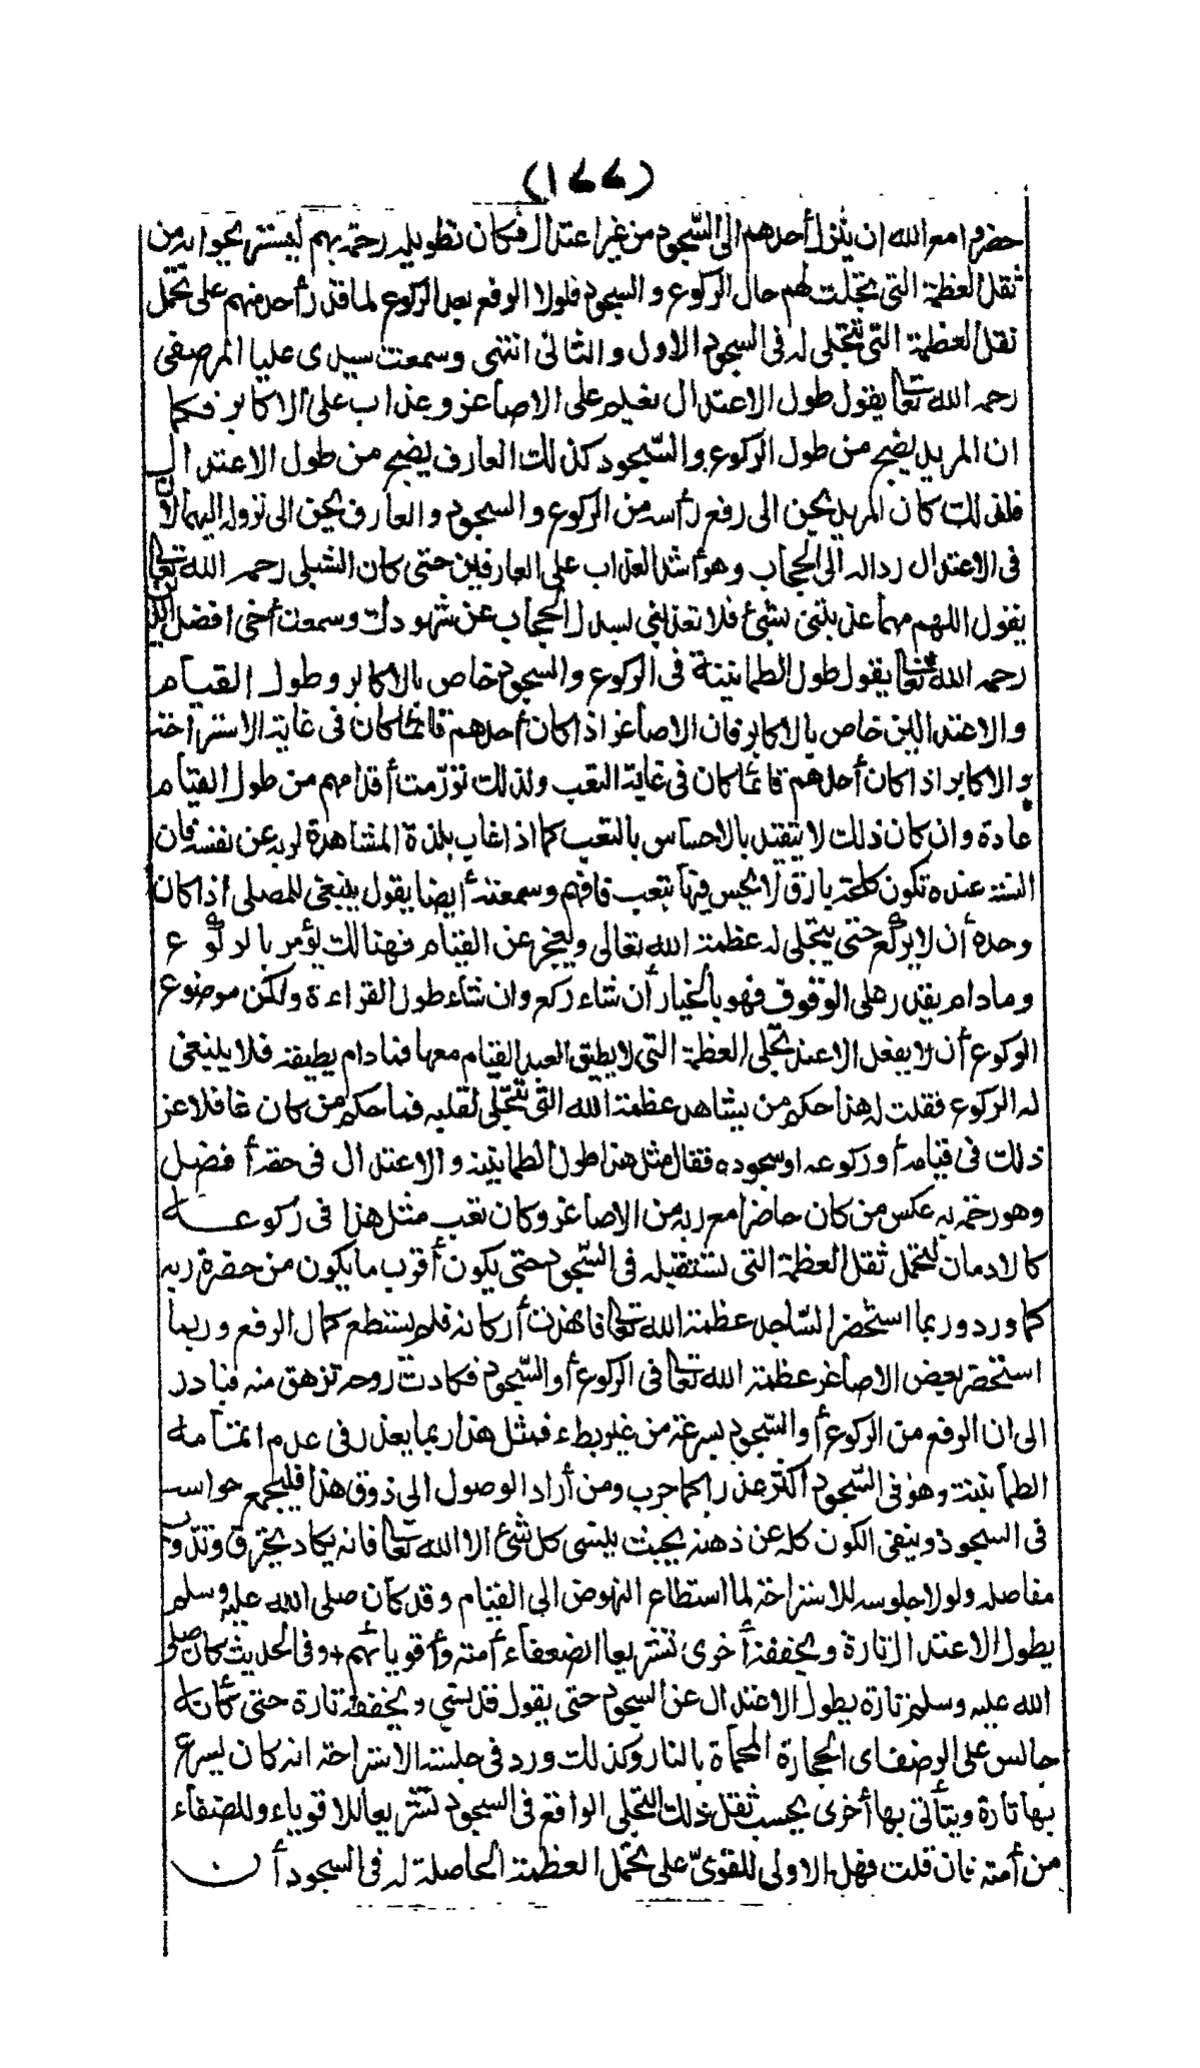 (١٤٤)
حضروا مع الله ان ينزل أحدهم الى السّجود من غير اعتدال فكان تطويله رحمة بهم ليستتر يحوا به من
ثقل العظمة التى تجلت لهم حال الركوع والسجود فلولا الرفع بعد الركوع لما قدر أحد منهم على تحمل
ثقل العظمة التى تتجلى له فى السجود الاول والثانى انتهى وسمعت سيدى عليا المرصفى
رحمه الله تعالى يقول طول الاعتدال نعيم على الاصاغر وعذاب على الاكابر فكما
ان المريد يضج من طول الركوع والسّجود كذلك العارف يضج من طول الاعتدال
فلذلك كان المريد يحن الى رفع رأسه من الركوع والسجود والعارف يحن الى نزوله اليهما لان
فى الاعتدال رداله الى الحجاب وهو أشد العذاب على العارفين حتى كان الشبلى رحمه الله تعالى
يقول اللهم مهما عذبتنى بشئ فلا تعذبنى بسدل الحجاب عن شهودك وسمعت أخى افضل الدين
رحمه الله تعالى يقول طول الطمانينة فى الركوع والسجود خاص بالاكابر وطول القيام
والاعتدالين خاص بالاكابر فان الاصاغر اذا كان أحدهم قائما كان فى غاية الاستراحة
والاكابر اذا كان أحدهم قائما كان فى غاية التعب ولذلك تورّمت أقدامهم من طول القيام
عادة وان كان ذلك لا يتقيد بالاحساس بالتعب كما اذا غاب بلذة المشاهدة لربه عن نفسه فان
السنة عنده تكون كلمحة بارق لا يحس فيها بتعب فافهم وسمعته أيضا يقول ينبغى للمصلى اذا كان
وحده أن لا يركع حتى يتجلى له عظمة الله تعالى ويعجز عن القيام فهنالك يؤمر بالركوع
ومادام يقدر على الوقوف فهو بالخيار أن شاء ركع وان شاء طول القراءة ولكن موضوع
الركوع أن لا يفعل الا عند تجلى العظمة التى لا يطيق العبد القيام معها فما دام يطيقه فلا ينبغى
له الركوع فقلت له هذا حكم من يشاهد عظمة الله التى تتجلى لقلبه فما حكم من كان غافلا عن
ذلك فى قيامه أو ركوعه او سجوده فقال مثل هذا طول الطمانينه والاعتدال فى حقه أفضل
وهو رحمة به عكس من كان حاضرا مع ربه من الاصاغر وكان تعب مثل هذا فى ركوعه
كالادمان ليتحمل ثقل العظمة التى تستقبله فى السّجود حتى يكون أقرب ما يكون من حضرة ربه
كما ورد وربما استحضر السّاجد عظمة الله تعالى فاهتزت أركانه فلم يستطع كمال الرفع وربما
استحضر بعض الاصاغر عظمة الله تعالى فى الركوع أو السّجود فكادت روحه تزهق منه فبادر
الى ان الرفع من الركوع أو السّجود بسرعة من غير بطء فمثل هذا ربما يعذر فى عدم اتمامه
الطمأنينة وهو فى السّجود أكثر عذرا كما جرب ومن أراد الوصول الى ذوق هذا فليجمع حواسه
فى السجود وينفى الكون كله عن ذهنه بحيث ينسى كل شئ الا الله تعالى فانه يكاد يحترق وتذوب
مفاصله ولولا جلوسه للاستراحة لما استطاع النهوض الى القيام وقد كان صلى الله عليه وسلم
يطول الاعتدال تارة ويخففه أخرى تشريعا لضعفاء أمته وأقويائهم وفى الحديث كان صلى
الله عليه وسلم تارة يطول الاعتدال عن السجود حتى يقول قد نسى ويخففه تارة حتى كأنه
جالس على الرضف اى الحجارة المحماة بالنار وكذلك ورد فى جلسة الاستراحة انه كان يسرع
بها تارة ويتأنى بها أخرى بحسب ثقل ذلك التجلى الواقع فى السجود تشريعا للاقوياء وللضعفاء
من أمته فان قلت فهل الاولى للقوىّ على تحمل العظمة الحاصلة له فى السجود أن